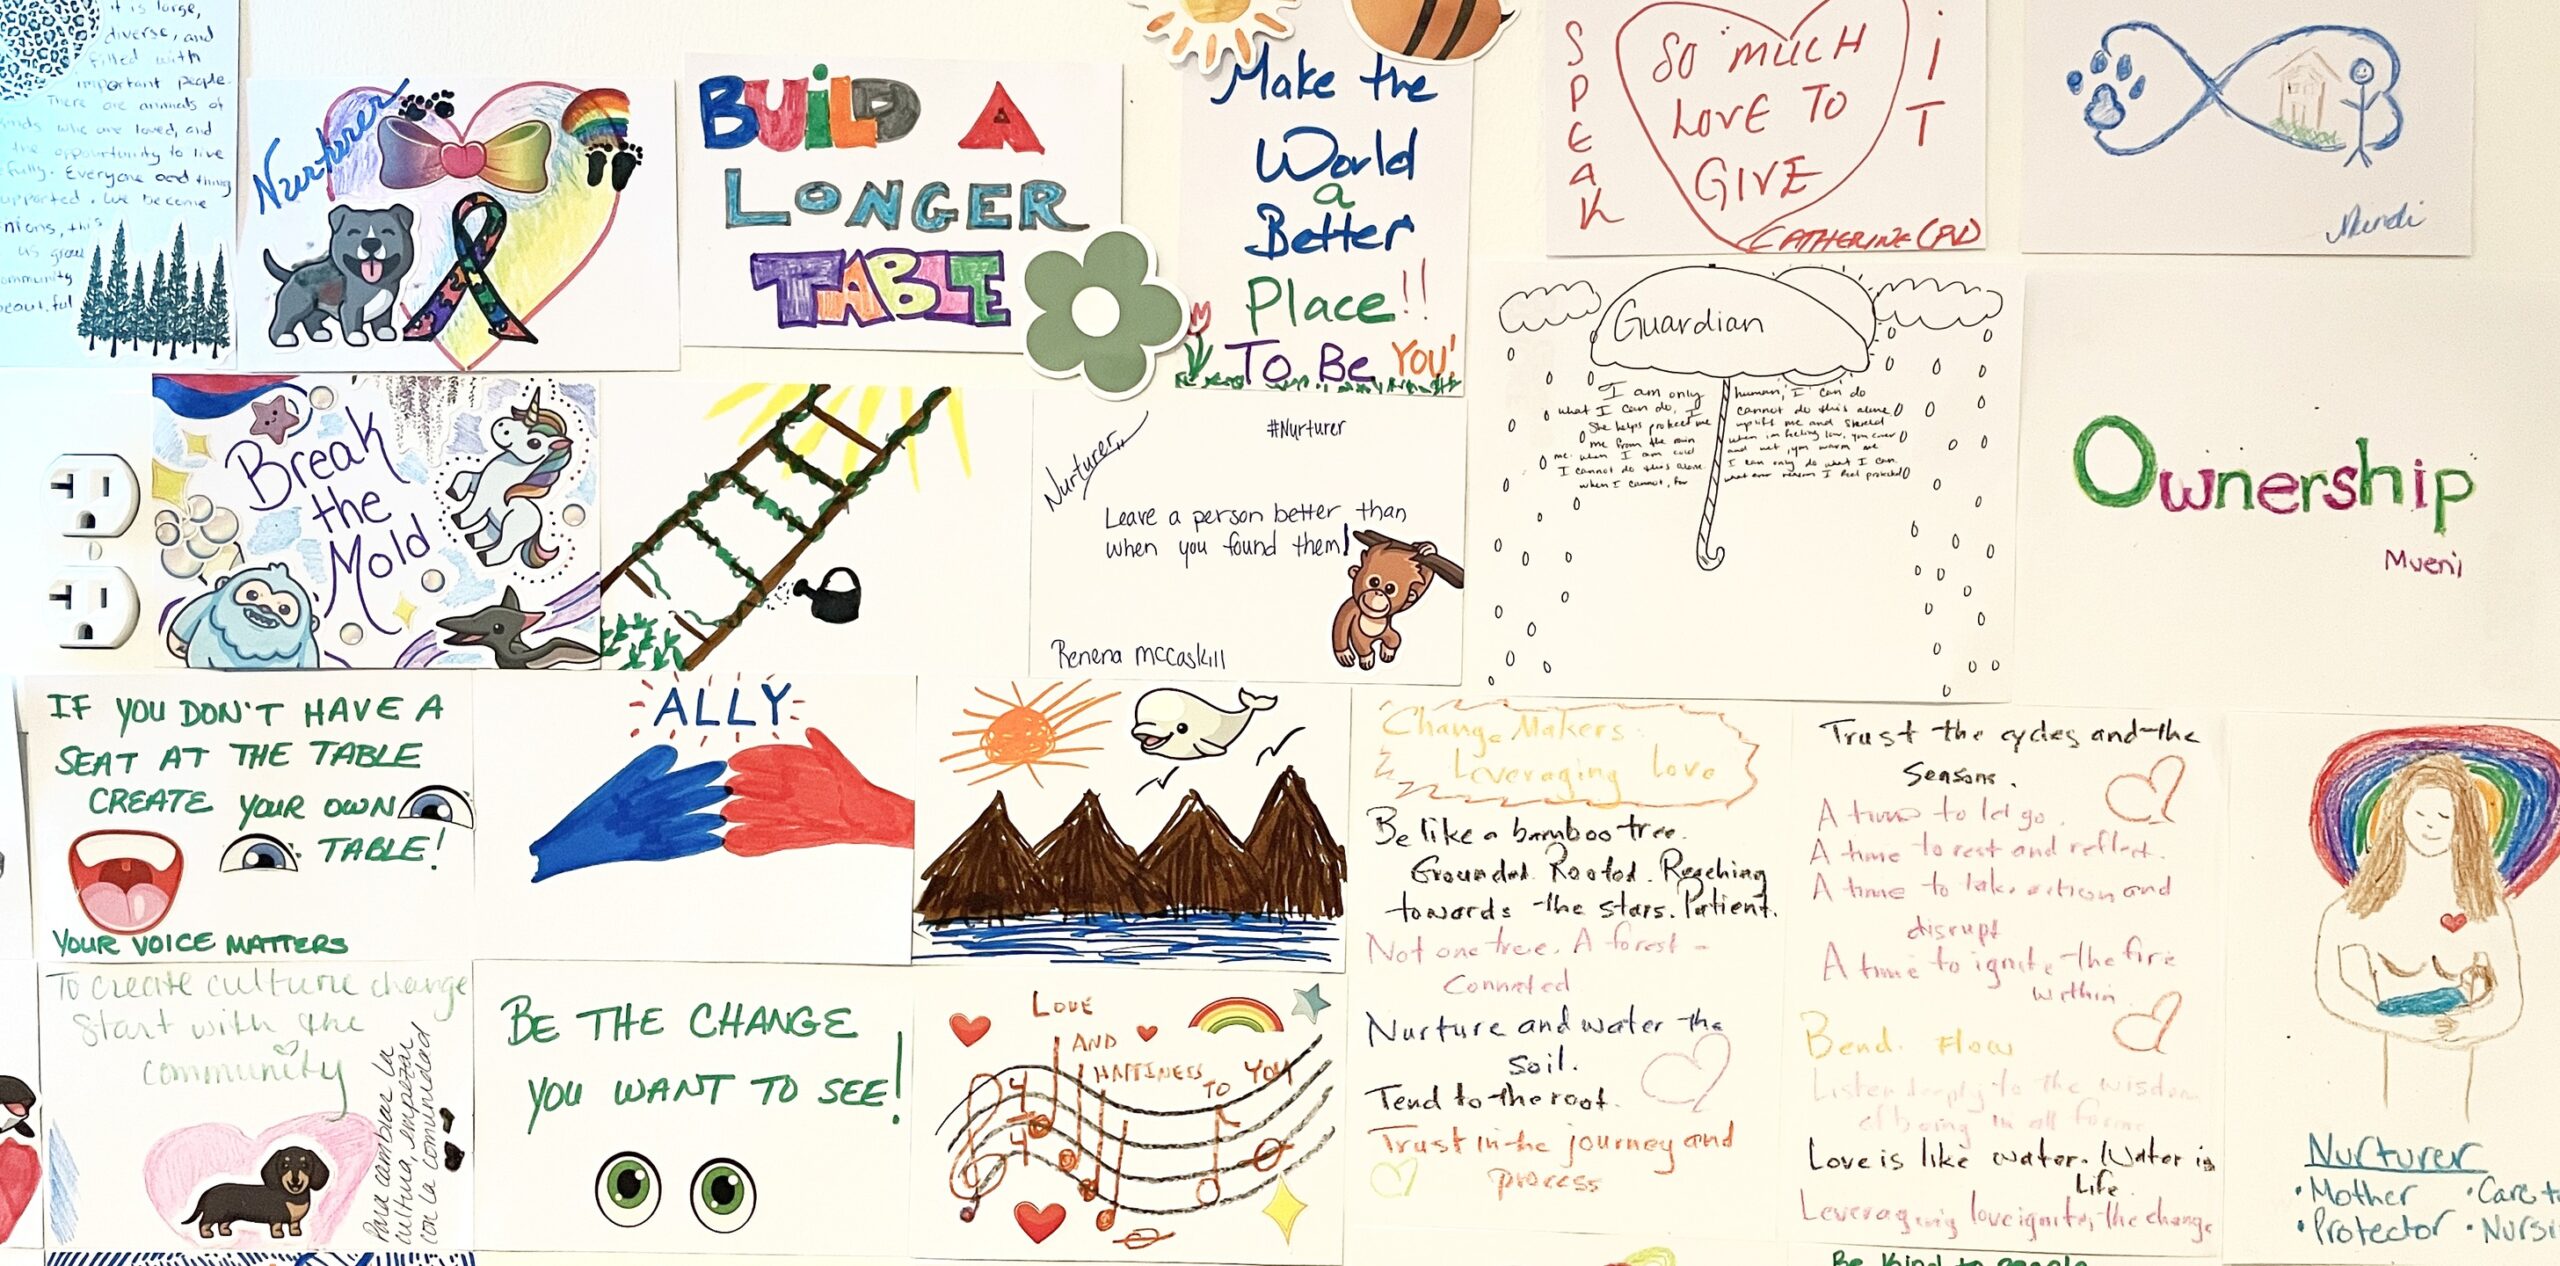 it is large,
diverse, and
filled with
important people.
There are animals of
who are loved, and
the oppourtunity to live
fully. Everyone and thing
upported. We become
this
us grow
ommunity
beautiful
Nurturer
BUILD A
LONGER
TABLE
Make the
World
a
Better
Place!!
To Be YOU!
SPEAK
SO MUCH
LOVE TO
GIVE
iT
CATHERINE (PVD)
Break
the
Mold
Nurturer
#Nurturer
Leave a person better than
when you found them!
Renena mccaskill
Guardian
I am only human, I can do
what I can do, I cannot do this alone
She helps protect me uplifts me and
me from the rain when im feeling low, you cover
me. when I am cold and wet, you warm me
I cannot do this alone. I can only do what I can.
when I cannot, for what ever reason I feel protected
Ownership
Mueni
IF YOU DON'T HAVE A
SEAT AT THE TABLE
CREATE YOUR OWN
TABLE!
YOUR VOICE MATTERS
ALLY
Change Makers:
Leveraging love
Be like a bamboo tree.
Grounded. Rooted. Reaching
towards the stars. Patient.
Not one tree. A forest -
Connected
Nurture and water the
soil.
Tend to the root.
Trust in the journey and
process
Trust the cycles and the
Seasons.
A time to let go.
A time to rest and reflect.
A time to take action and
disrupt
A time to ignite the fire
within.
Bend. Flow
Listen deeply to the wisdom
of being in all forms
Love is like water. Water is
Life.
Leveraging love ignites the change
Nurturer
•Mother •Care
•Protector •Nursi
To create culture change
Start with the
community
Para cambiar la
cultura, empezar
con la comunidad
BE THE CHANGE
YOU WANT TO SEE!
LOVE
AND
HAPPINESS
TO YOU
4
4
Be kind to people